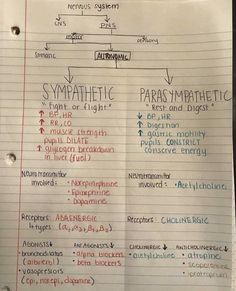 Nervous system
CNS PNS
motor sensory
Somatic AUTONOMIC
SYMPATHETIC PARASYMPATHETIC
"fight or flight" "Rest and Digest"
↑ BP, HR ↓ BP, HR
↑ RR, CO ↑ Digestion
↑ muscle strength ↑ gastric motility
pupils DILATE pupils CONSTRICT
↑ glycogen breakdown conserve energy
in liver (fuel)
Neurotransmitter Neurotransmitter
involved: • Norepinephrine involved: • Acetylcholine
• Epinephrine
• Dopamine
Receptors: ADRENERGIC Receptors: CHOLINERGIC
4 types
AGONISTS ANTAGONISTS CHOLINERGIC ANTICHOLINERGIC
• bronchodilators • alpha blockers • acetylcholine • atropine
(albuterol) • beta blockers • scopolamine
• vasopressors • ipratropium
(epi, norepi, dopamine)